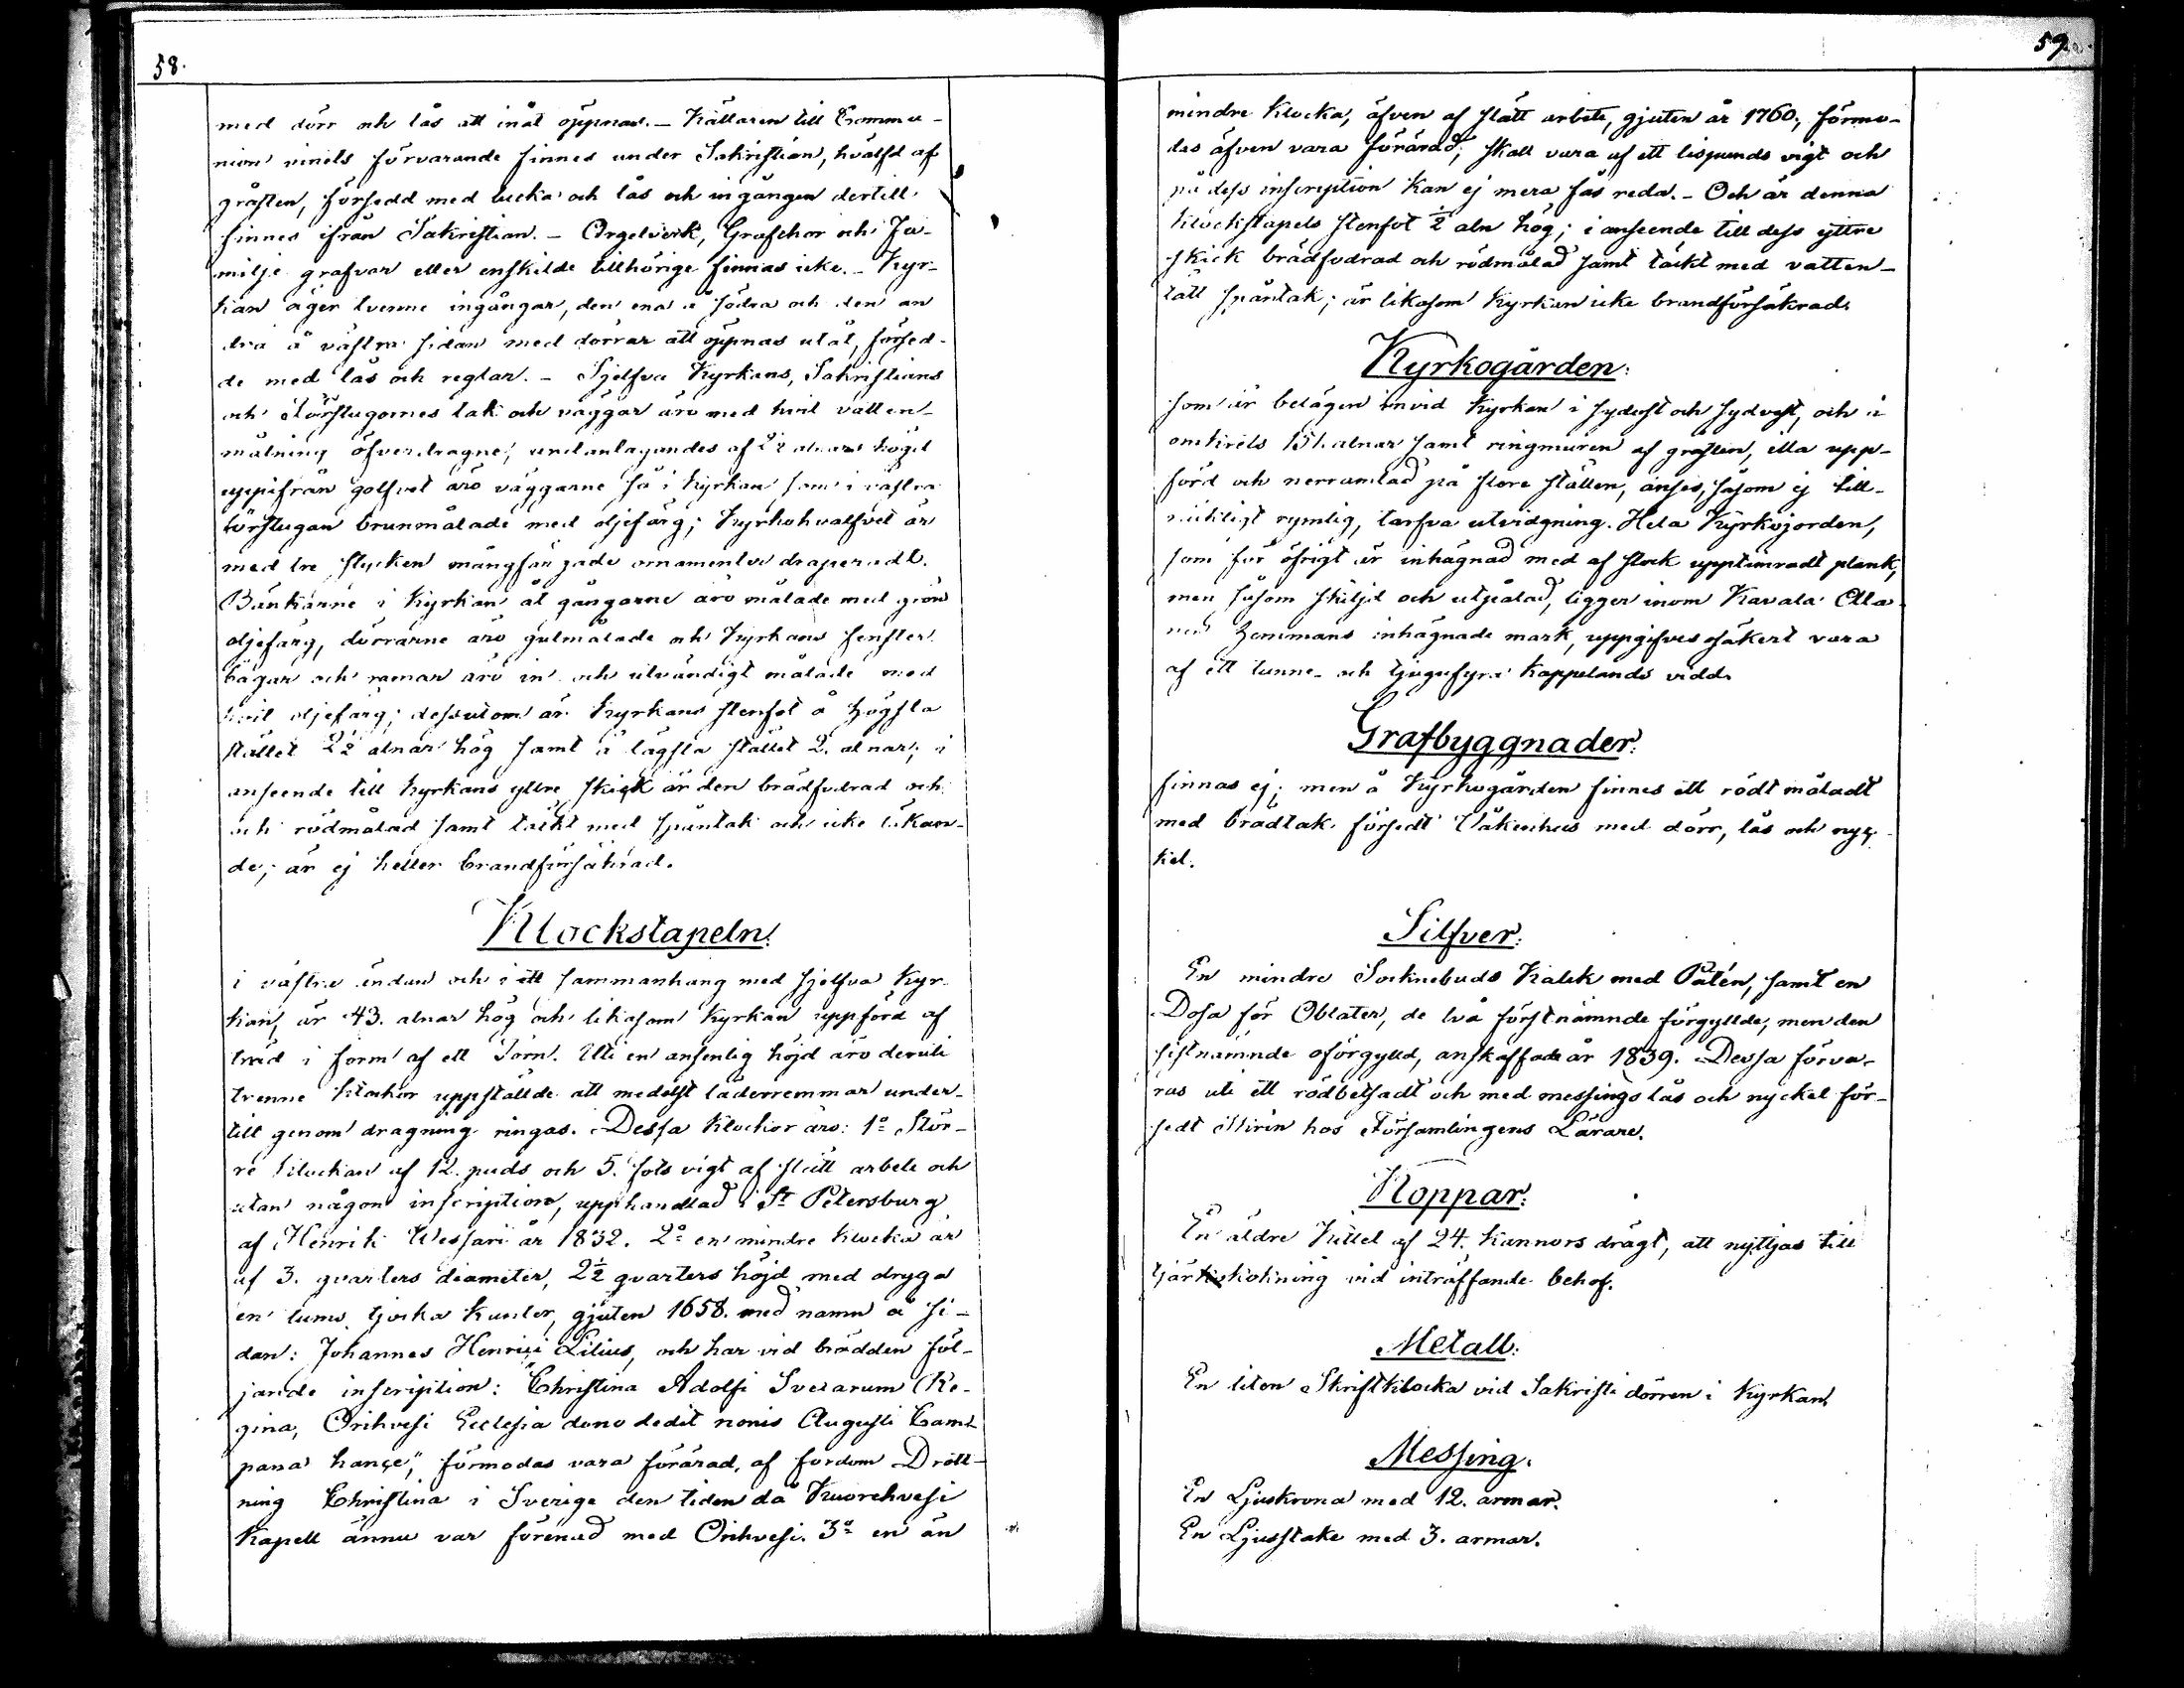 58.
med dörr och lås att inåt öppnas. – Källaren till Commu-
nion vinets förvarande finnes under Sakristian, hvälfd af
gråsten, försedd med lucka och lås och ingången dertill
finnes ifrån Sakristian. – Orgelverk, Grafchor och Fa-
milje grafvar eller enskilde tillhörige finnas icke. – Kyr-
kan äger tvenne ingångar, den ena å södra och den an
dra å västra sidan med dörrar att öppnas utåt, försed-
de med lås och reglar. – Sjelfva Kyrkans, Sakristians
och Förstugornes tak och väggar äro med hvit vatten-
målning öfverdragne, undantagandes af 2½ alnars högd
uppifrån golfvet äro väggarne så i Kyrkan som i västra
förstugan brunmålade med oljefärg; Kyrkohvalfvet är
med tre stycken mångfärgade ornamenter draperadt.
Bänkarne i Kyrkan åt gångarne äro målade med grön
oljefärg, dörrarne äro gulmålade och Kyrkans fenster
bågar och ramar äro in och utvändigt målade med
hvit oljefärg; dessutom är Kyrkans stenfot å högsta
stället 2½ alnar hög samt å lägsta stället 2. alnar; i
anseende till kyrkans yttre skick är den brädfodrad och
och rödmålad samt täckt med spåntak och icke läkan-
de; är ej heller brandförsäkrad.
Klockstapeln.
i västra ändan och i ett sammanhang med sjelfva Kyr-
kan, är 43. alnar hög och likasom Kyrkan uppförd af
träd i form af ett Torn. Uti en ansenlig höjd äro deruti
trenne klockor uppställde att medelst läderremmar under-
till genom dragning ringas. Dessa klockor äro: 1º Stör-
re klockan af 12. puds och 5. ƒots vigt af slätt arbete och
utan någon inscription, upphandlad i St Petersburg
af Henrik Wessari år 1832. 2º en mindre klocka är
af 3. qvarters diameter, 2½ qvarters höjd med dryga
en tums tjocka kanter, gjuten 1658. med namn å si-
dan: Johannes Henrici Lilius, och har vid brädden föl-
jande inscription: "Christina Adolfi Svecarum Re-
gina, Orihvesi Ecclesia dono dedit nonis Augusti Cam-
pana hance," förmodas vara förärad, af fordom Drott-
ning Christina i Sverige den tiden då Kuorehvesi
Kapell ännu var förenad med Orihvesi. 3º en än
59.
mindre klocka, äfven af slätt arbete, gjuten år 1760; förmo-
das äfven vara förärad; skall vara af ett lispunds vigt och
på dess inscription kan ej mera fås reda. – Och är denna
klockstapels stenfot ½ aln hög; i anseende till dess yttre
skick brädfodrad och rödmålad samt täckt med vatten-
tätt spåntak; är likasom Kyrkan icke brandförsäkrad.
Kyrkogården:
som är belägen invid Kyrkan i sydost och sydvest, och i
omkrets 151. alnar samt ringmuren af gråsten, illa upp-
förd och nerramlad på flere ställen, anses, såsom ej till-
räckligt rymlig, tarfva utvidgning. Hela Kyrkojorden,
som för öfrigt är inhägnad med af stock upptimradt plank,
men såsom skiljd och utpålad, ligger inom Karala Olla
nen hemmans inhägnade mark, uppgifves osäkert vara
af ett tunne- och tjugufyra kappelands vidd.
Grafbyggnader:
finnas ej; men å Kyrkogården finnes ett rödt måladt
med brädtak försedt Våkenhus med dörr, lås och nyc-
kel.
Silfver:
En mindre Socknebuds Kalck med Patén, samt en
Dosa för Oblater, de två förstnämnde förgyllde, men den
sistnämnde oförgylld, anskaffade år 1839. Dessa förva-
ras uti ett rödbetsadt och med messings lås och nyckel för-
sedt skrin hos Församlingens Lärare.
Koppar:
En äldre kittel af 24. kannors drägt, att nyttjas till
tjärkokning vid inträffande behof.
Metall:
En liten Skriftklocka vid Sakristi dörren i Kyrkan.
Messing.
En Ljuskrona med 12. armar.
En Ljusstake med 3. armar.